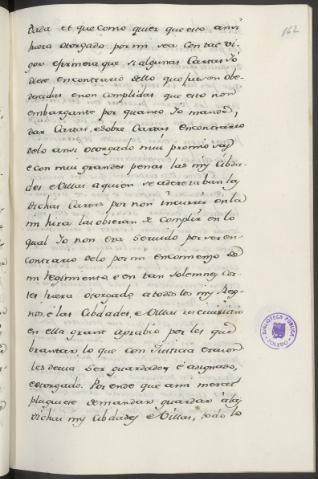 162
dada et que como quier que esto ami
hora otorgado por mi sea con tal vi-
gor e firmeza que si algunas Cartas Yo
diere en contrario dello que fuesen obe-
decidas e non complidas que esto non
embargante por quanto Yo mandé
dar Cartas e Sobre Cartas en contrario
delo ami otorgado mui premiosas
e con mui grandes penas las mis Cibda-
des e Villas a quien se aderezaban las
dichas Cartas por non incurrir en la
mi hira las obieran de complir en lo
qual Yo non era Servido por ser en
contrario delo por mi en comienzo de
mi Regimiento e en tan Solemnes Cor-
tes hera otorgado a todos los mis Reg-
nos, e las Cibdades, e Villas rescivirian
en ello grant agrabio por les que-
brantar lo que con Justicia e razon
les devia Ser guardado, e asignado,
e otorgado. Por ende que ami merced
plaguiese demandar guardar a las
dichas mis Cibdades e Villas, todo lo
BIBLIOTECA PUBLICA
TOLEDO